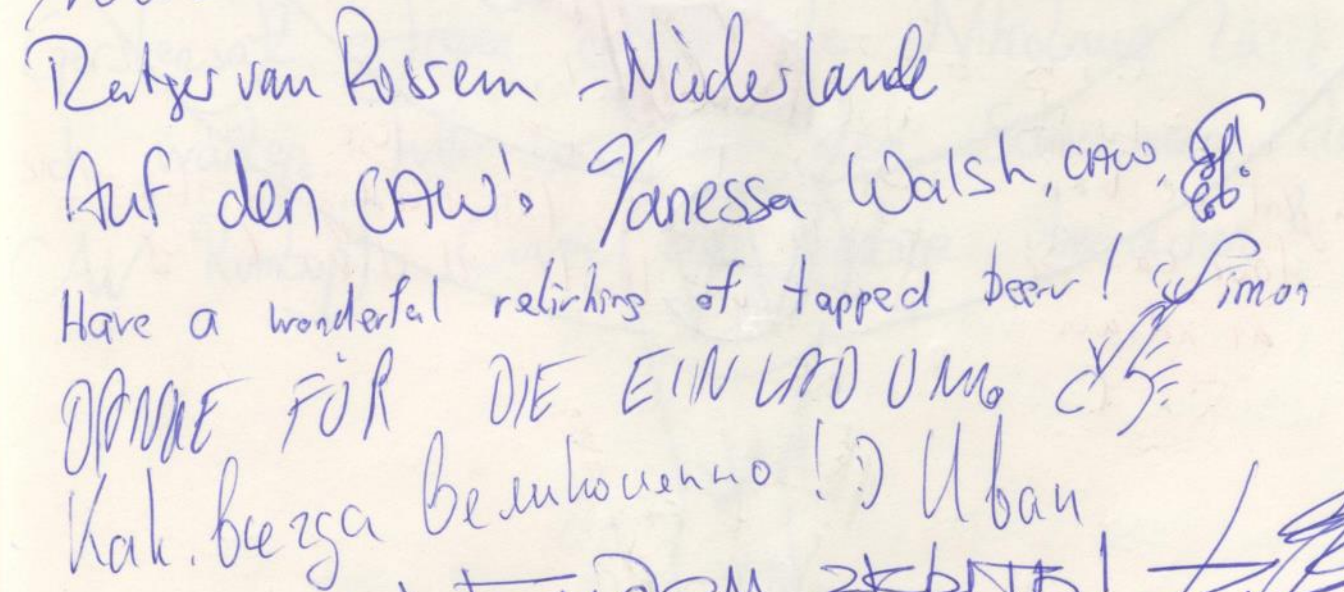 Rutger van Rossem - Niederlande
Auf den CAW! Vanessa Walsh, CAW,
Have a wonderful relirhing of tapped beer! Simon
DANKE FÜR DIE EINLADUNG
Как всегда великоленно! :) Иван